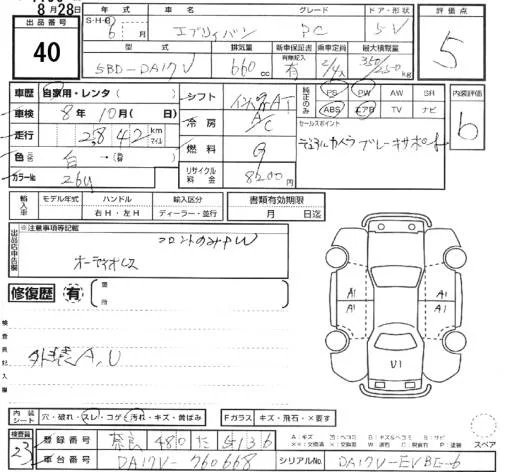 8月28日
出品番号
40
年式
S・H・R
6
月
車名
エブリイバン
グレード
PC
ドア・形状
5V
評価点
5
型式
5BD-DA17V
排気量
660
cc
新車保証書
有無記入
有
乗車定員
2/4人
最大積載量
350/250kg
車歴
自家用・レンタ( )
車検
8年10月( 日)
走行
2842
km
マイル
色
色番
白→(替)
カラーNo.
26U
シフト
インパネAT
冷房
A/C
燃料
G
リサイクル料金
8200円
純正のみ
PS PW AW SR
ABS エアB TV ナビ
セールスポイント
デュアルカメラブレーキサポート
内装評価
b
輸入車
モデル年式
ハンドル
右H・左H
輸入区分
ディーラー・並行
書類有効期限
月 日迄
出品店申告欄
※注意事項等記載
フロントのみPW
オーディオレス
修復歴
有
箇所
検査員記入欄
外装A,U
A1 A1
A1 A1
U1
内装シート
穴・破れ・スレ・コゲ・汚れ・キズ・黄ばみ
Fガラス
キズ・飛石・×要す
スペア
検査員
23
登録番号
奈良 480 た 5136
車台番号
DA17V-760668
シリアルNo.
DA17V-EVBE-6